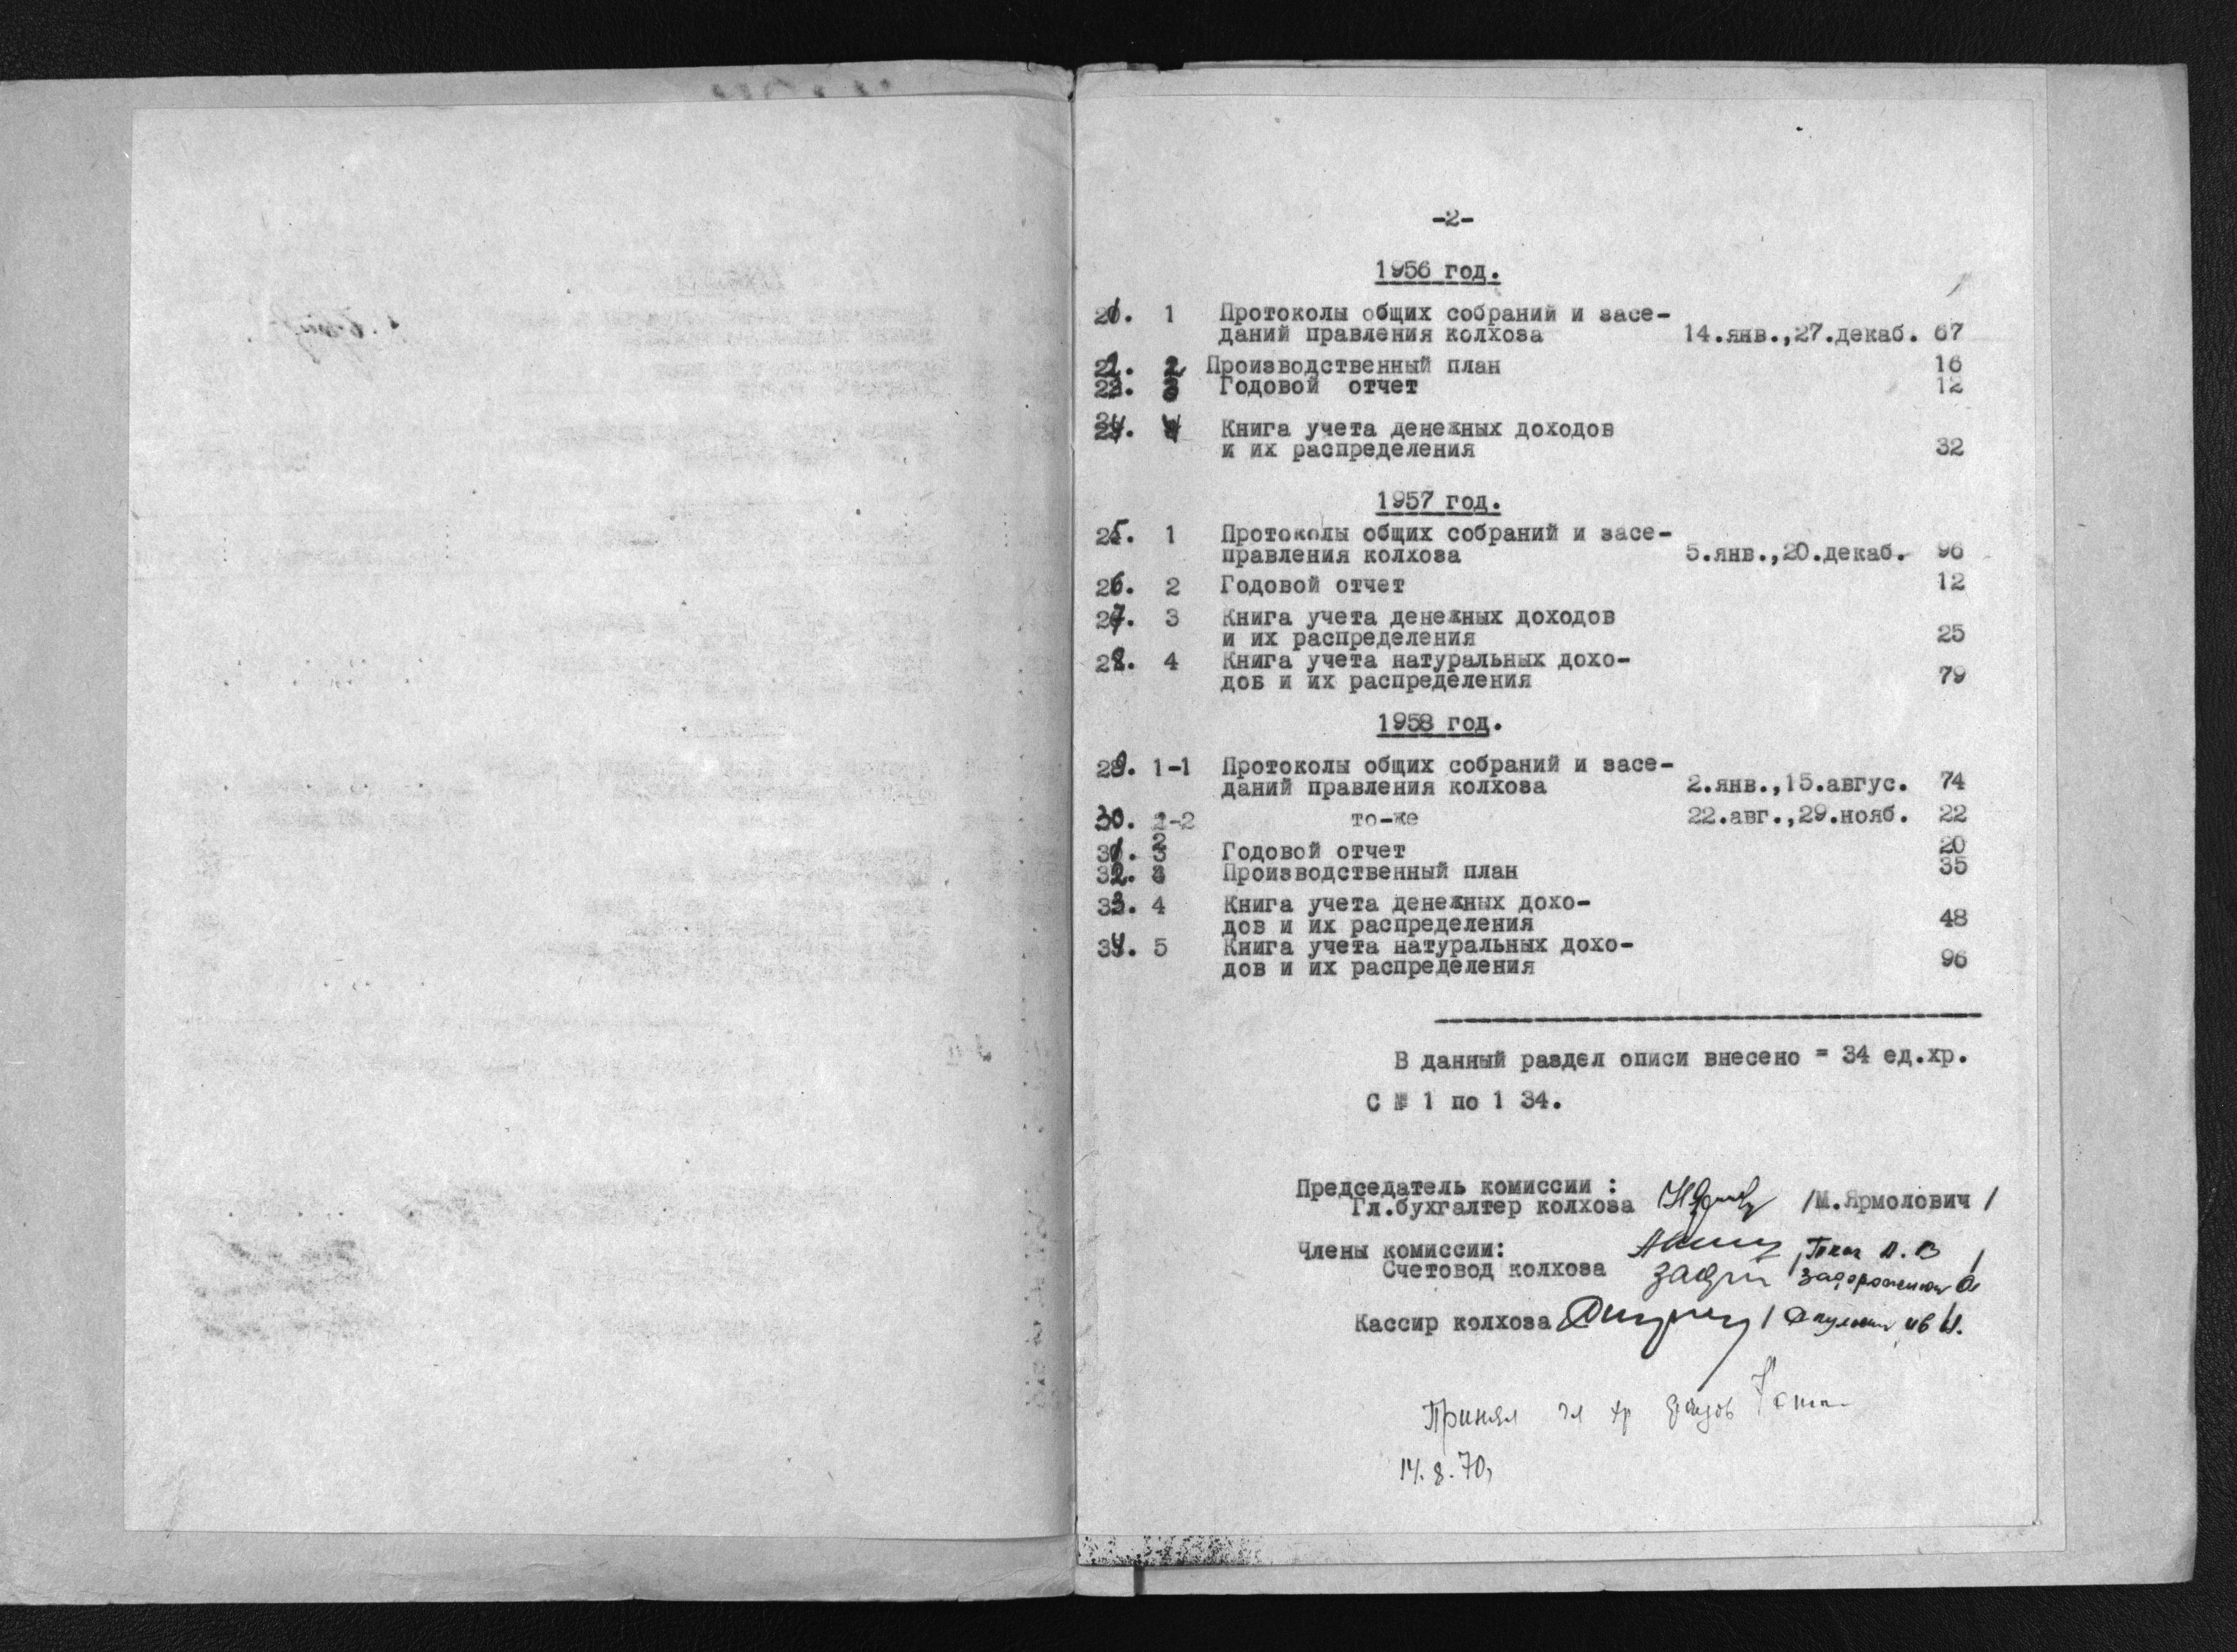 -2-
1956 год.
21. 1 Протоколы общих собраний и засе-
даний правления колхоза 14.янв.,27.декаб. 67
22. 2 Производственный план 16
23. 3 Годовой отчет 12
24. 4 Книга учета денежных доходов
и их распределения 32
1957 год.
25. 1 Протоколы общих собраний и засе-
правления колхоза 5.янв.,20.декаб. 96
26. 2 Годовой отчет 12
27. 3 Книга учета денежных доходов
и их распределения 25
28. 4 Книга учета натуральных дохо-
дов и их распределения 79
1958 год.
29. 1-1 Протоколы общих собраний и засе-
даний правления колхоза 2.янв.,15.авгус. 74
30. 1-2 то-же 22.авг.,29.нояб. 22
31. 2 Годовой отчет 20
32. 3 Производственный план 35
33. 4 Книга учета денежных дохо-
дов и их распределения 48
34. 5 Книга учета натуральных дохо-
дов и их распределения 96
В данный раздел описи внесено = 34 ед.хр.
С № 1 по 1 34.
Председатель комиссии :
Гл.бухгалтер колхоза /М.Ярмолович/
Члены комиссии:
Счетовод колхоза
Кассир колхоза
Принял
14.8.70,